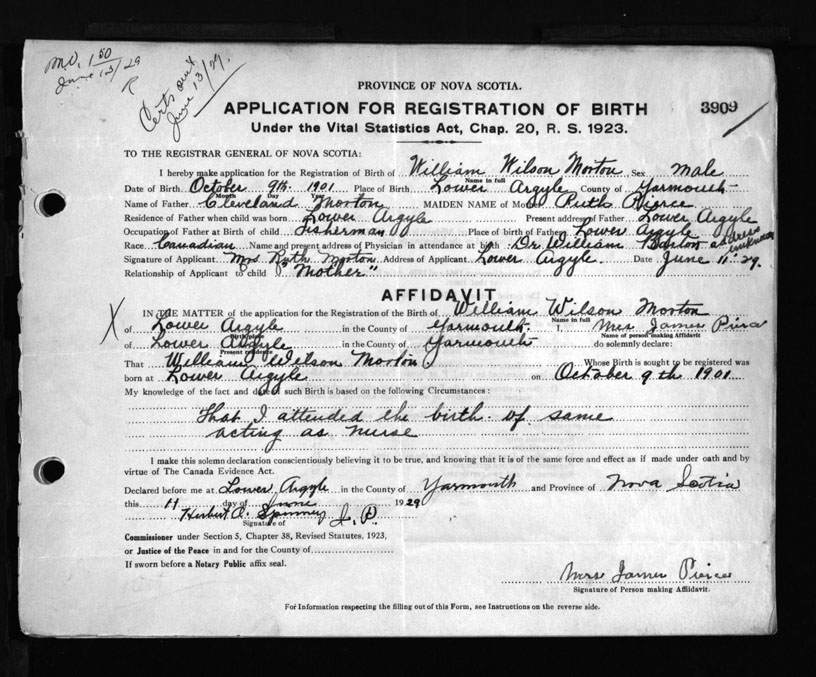 M.O. 1 50
June 13/29
R
Certs out
June 13/29.
PROVINCE OF NOVA SCOTIA.
APPLICATION FOR REGISTRATION OF BIRTH 3909
Under the Vital Statistics Act, Chap. 20, R. S. 1923.
TO THE REGISTRAR GENERAL OF NOVA SCOTIA:
I hereby make application for the Registration of Birth of William Wilson Morton Sex Male
Name in full
Date of Birth October 9th 1901 Place of Birth Lower Argyle County of Yarmouth
Month Day Year
Name of Father Cleveland Morton MAIDEN NAME of Mother Ruth Pierce
Residence of Father when child was born Lower Argyle Present address of Father Lower Argyle
Occupation of Father at Birth of child Fisherman Place of birth of Father Lower Argyle
Race Canadian Name and present address of Physician in attendance at birth Dr. William address unknown
Signature of Applicant Mrs Ruth Morton Address of Applicant Lower Argyle. Date June 11" 29.
Relationship of Applicant to child "Mother"
AFFIDAVIT
X
IN THE MATTER of the application for the Registration of the Birth of William Wilson Morton
Name in full
of Lower Argyle in the County of Yarmouth I, Mrs James Pierce
Birthplace Name of person making Affidavit
of Lower Argyle in the County of Yarmouth do solemnly declare:
Present residence
That William Wilson Morton Whose Birth is sought to be registered was
born at Lower Argyle on October 9th 1901
My knowledge of the fact and date of such Birth is based on the following Circumstances:
That I attended the birth of same
acting as nurse
I make this solemn declaration conscientiously believing it to be true, and knowing that it is of the same force and effect as if made under oath and by
virtue of The Canada Evidence Act.
Declared before me at Lower Argyle in the County of Yarmouth and Province of Nova Scotia
this 11 day of June 1929
Herbert A. Spinney J. P.
Signature of
Commissioner under Section 5, Chapter 38, Revised Statutes, 1923,
or Justice of the Peace in and for the County of
If sworn before a Notary Public affix seal.
Mrs James Pierce
Signature of Person making Affidavit.
For Information respecting the filling out of this Form, see Instructions on the reverse side.